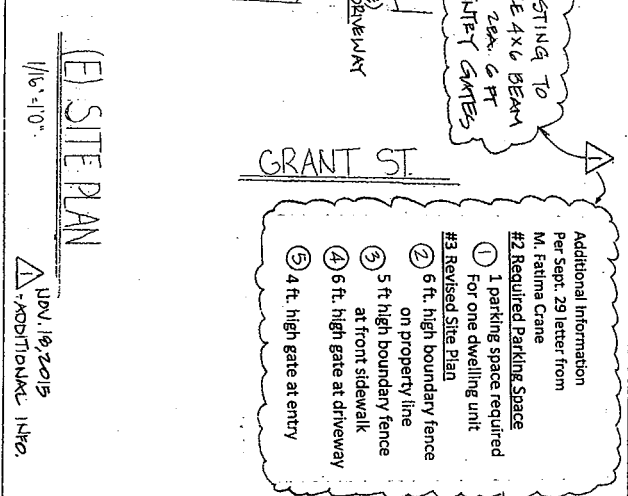 STING TO
E 4X6 BEAM
2EA. 6 FT
NTRY GATES
E)
DRIVEWAY
1
GRANT ST.
Additional Information
Per Sept. 29 letter from
M. Fatima Crane
#2 Required Parking Space
1 1 parking space required
For one dwelling unit
#3 Revised Site Plan
2 6 ft. high boundary fence
on property line
3 5 ft high boundary fence
at front sidewalk
4 6 ft. high gate at driveway
5 4 ft. high gate at entry
(E) SITE PLAN
1/16"=1'0"
NOV. 18, 2015
1 - ADDITIONAL INFO.